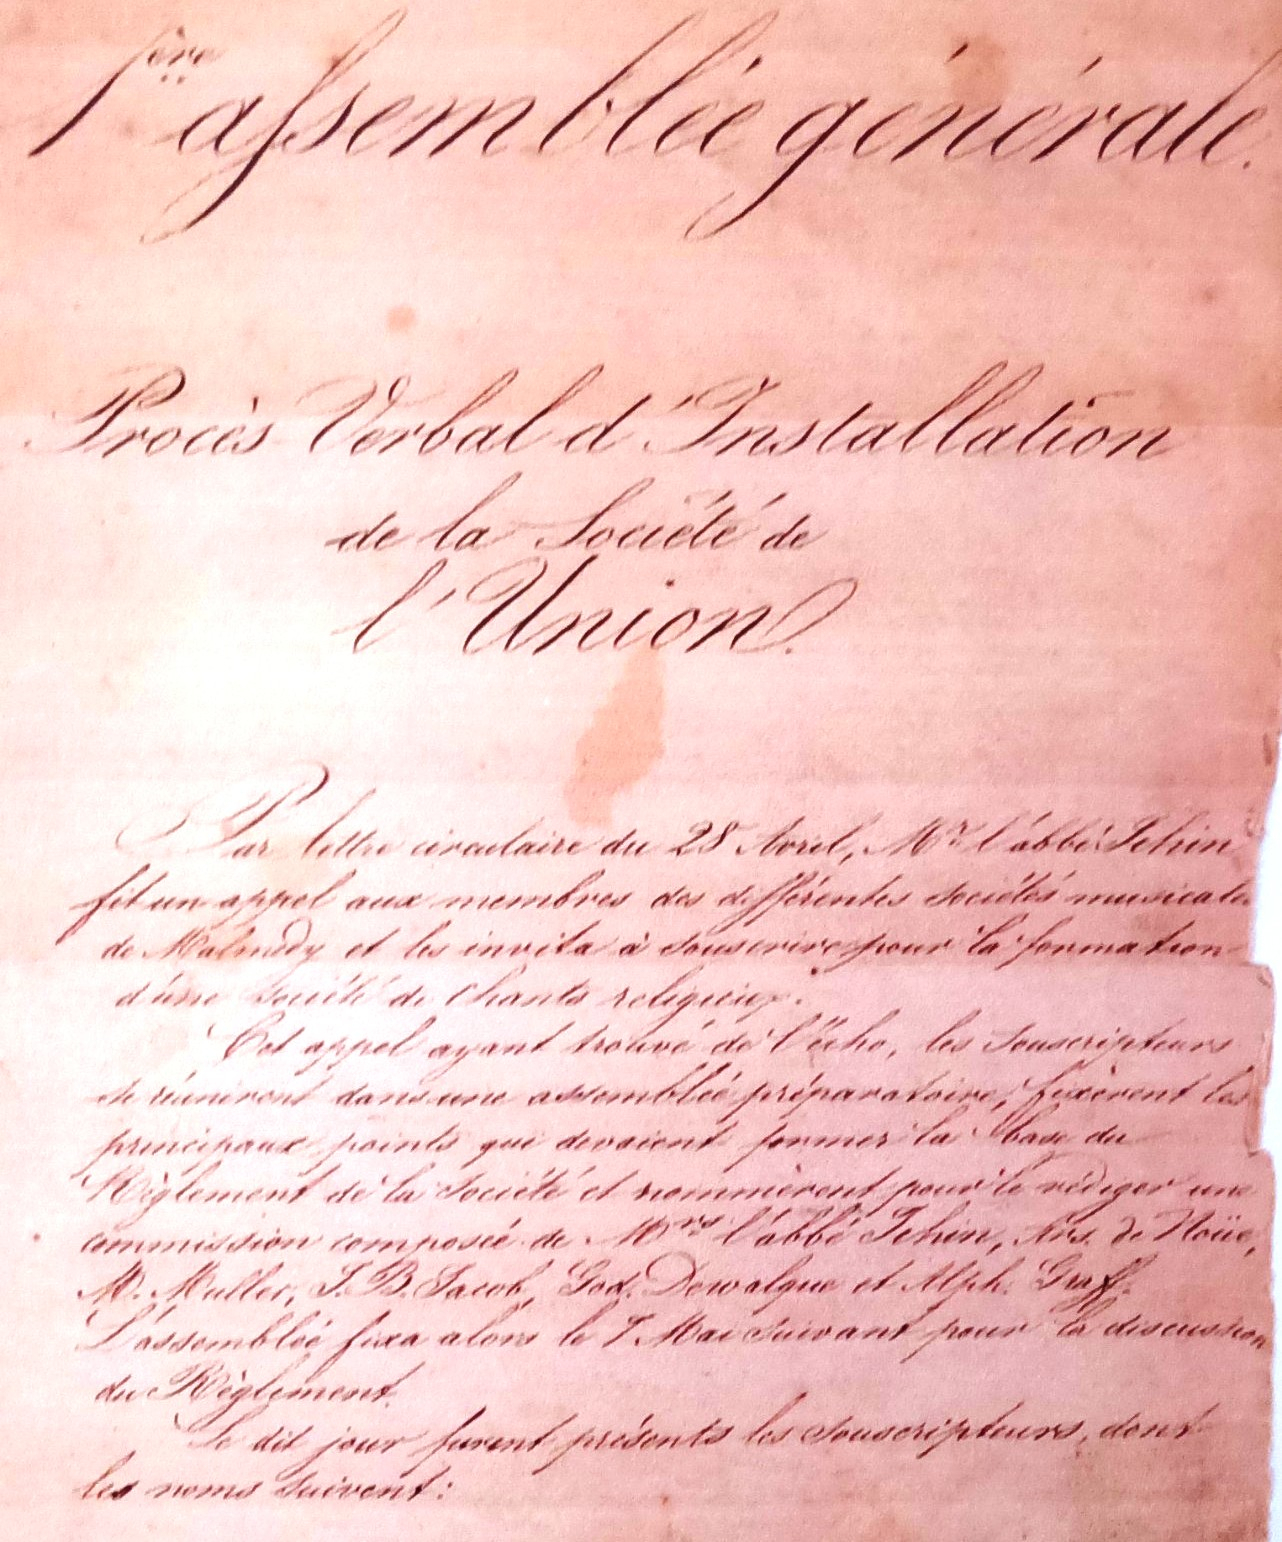 1ère assemblée générale.
Procès Verbal d'Installation
de la Société de
l'Union.
Par lettre circulaire du 28 Avril, Mr l'abbé Jehin
fit un appel aux membres des différentes sociétés musicales
de Malmedy et les invita à souscrire pour la formation
d'une société de Chants religieux.
Cet appel ayant trouvé de l'écho, les souscripteurs
se réunirent dans une assemblée préparatoire, fixèrent les
principaux points qui devaient former la base du
Règlement de la Société et nommèrent pour le rédiger une
commission composée de Mrs l'abbé Jehin, Ars. de Noüe,
M. Muller, J. B. Jacob, God. Dewalque et Alph. Graf.
L'assemblée fixa alors le 7 Mai suivant pour la discussion
du Règlement.
Le dit jour furent présents les souscripteurs, dont
les noms suivent: